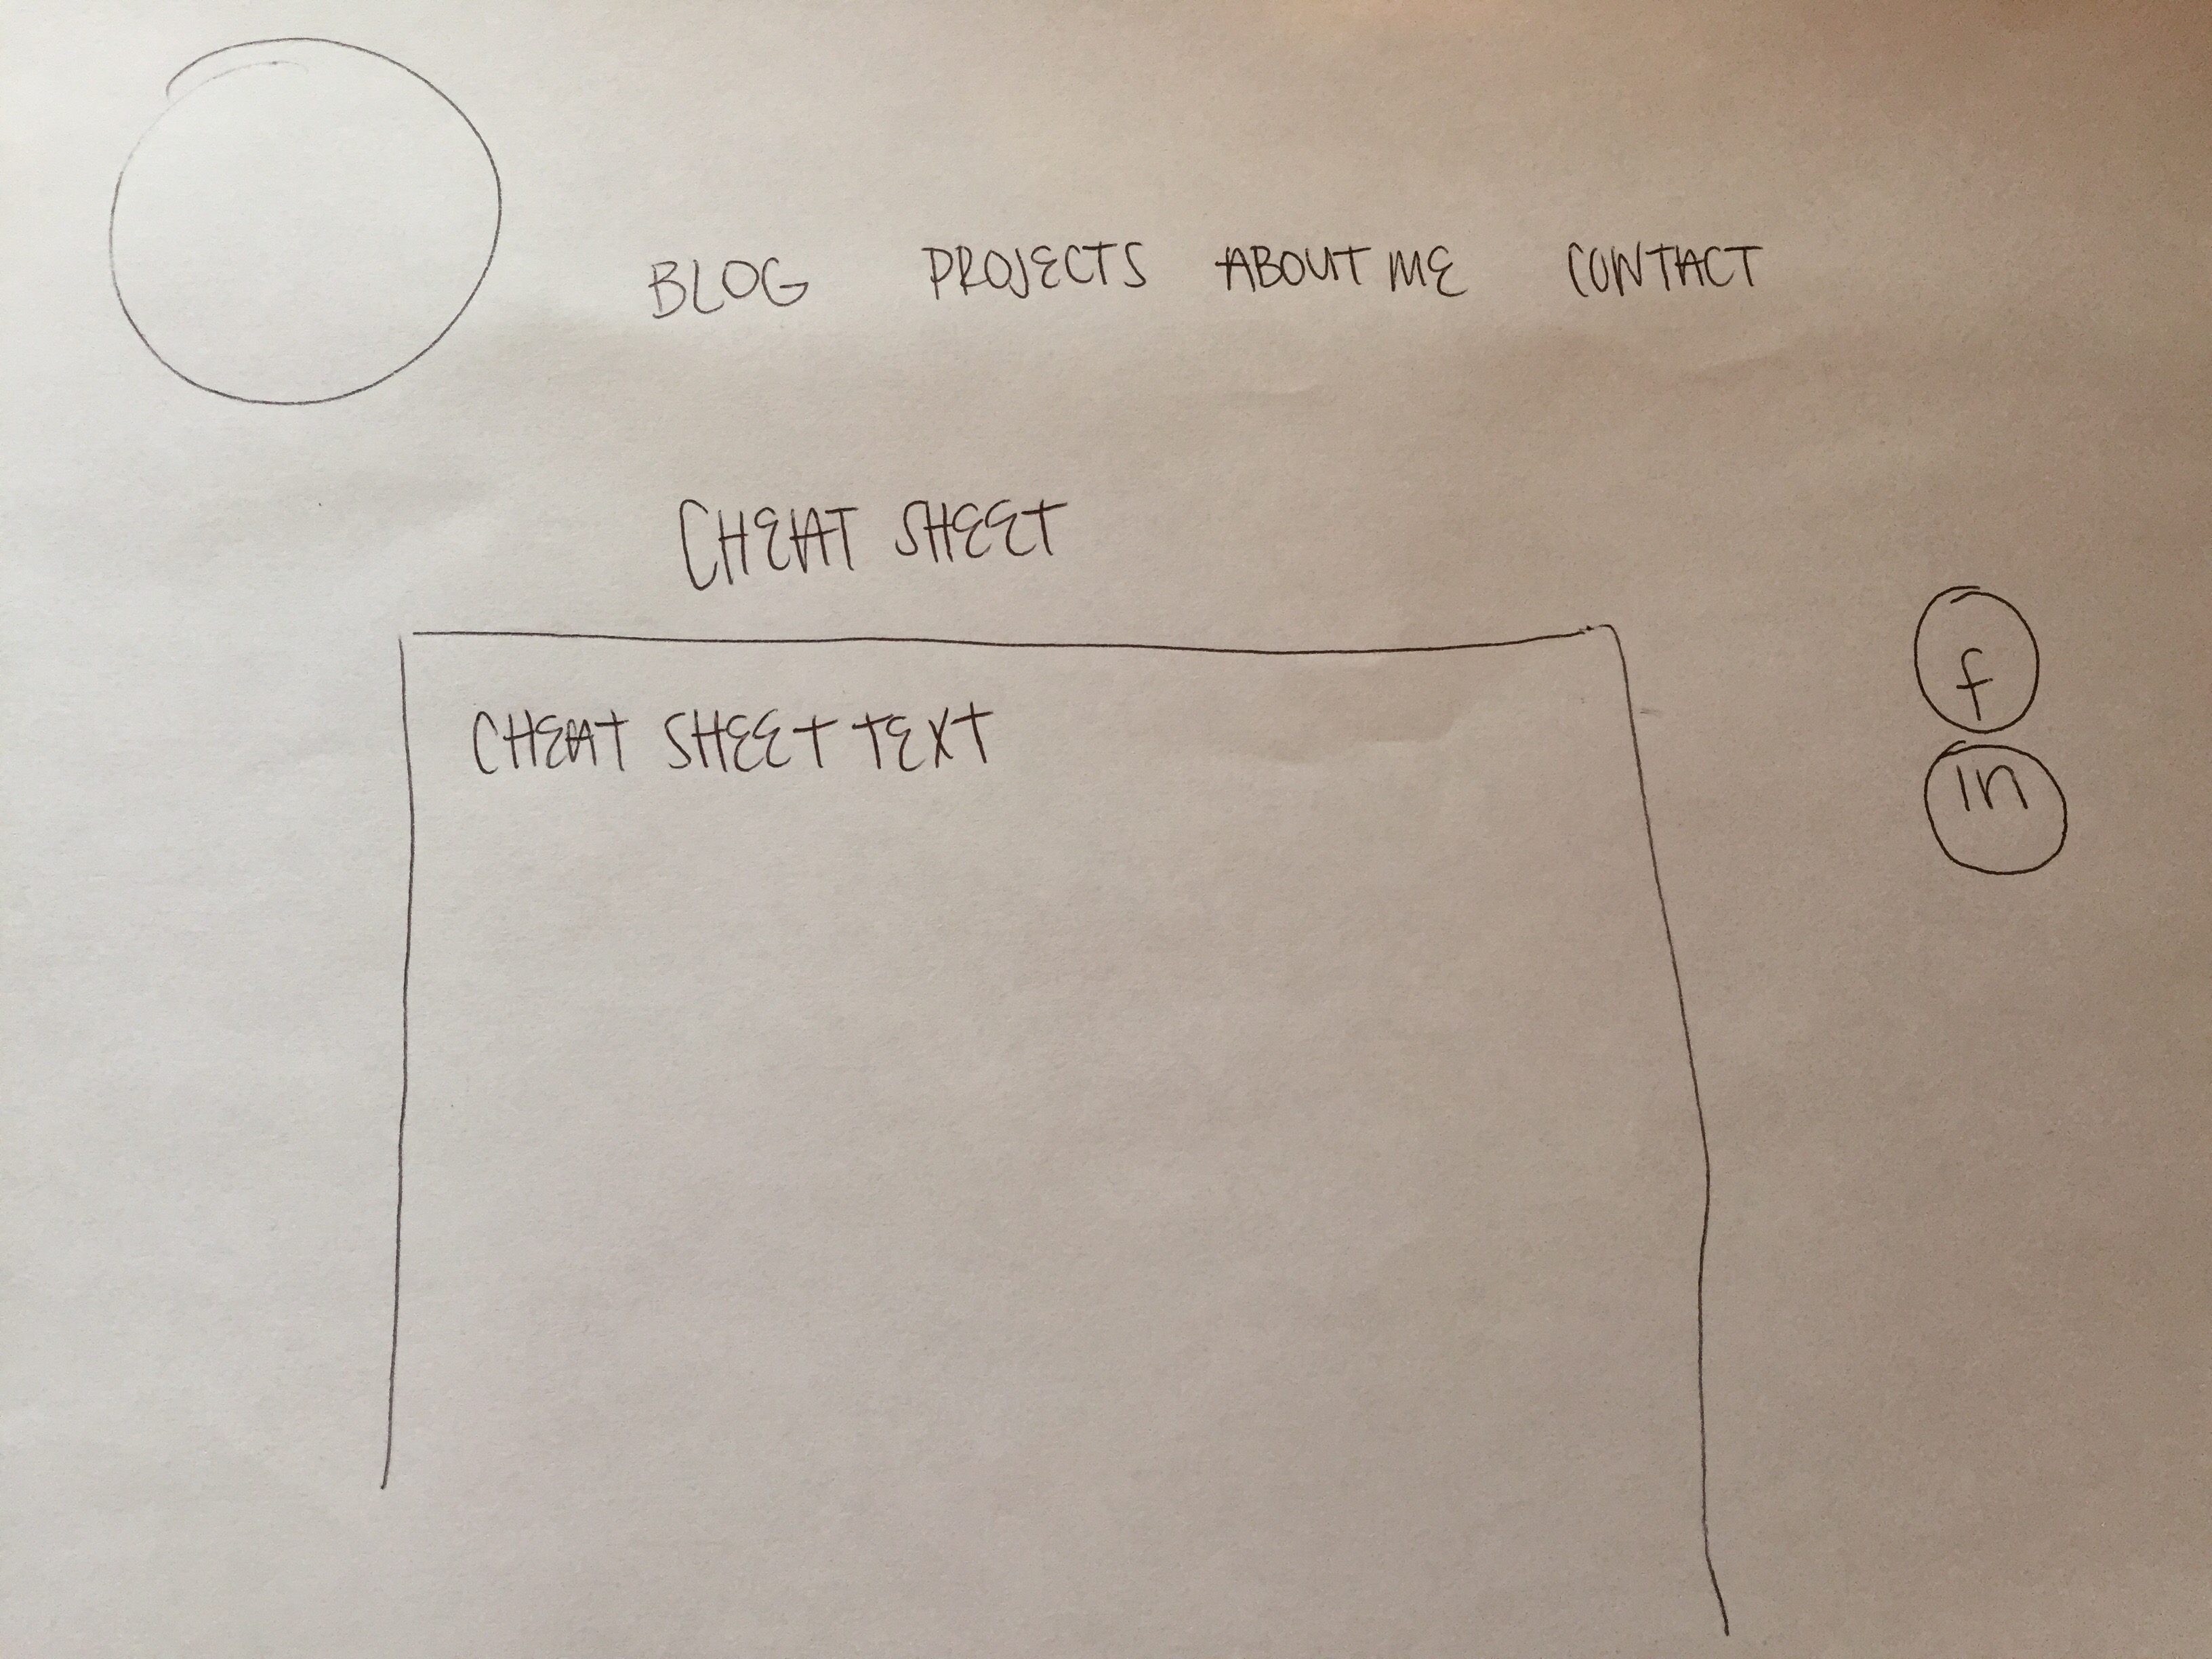 BLOG PROJECTS ABOUT ME CONTACT
CHEAT SHEET
CHEAT SHEET TEXT
f
in